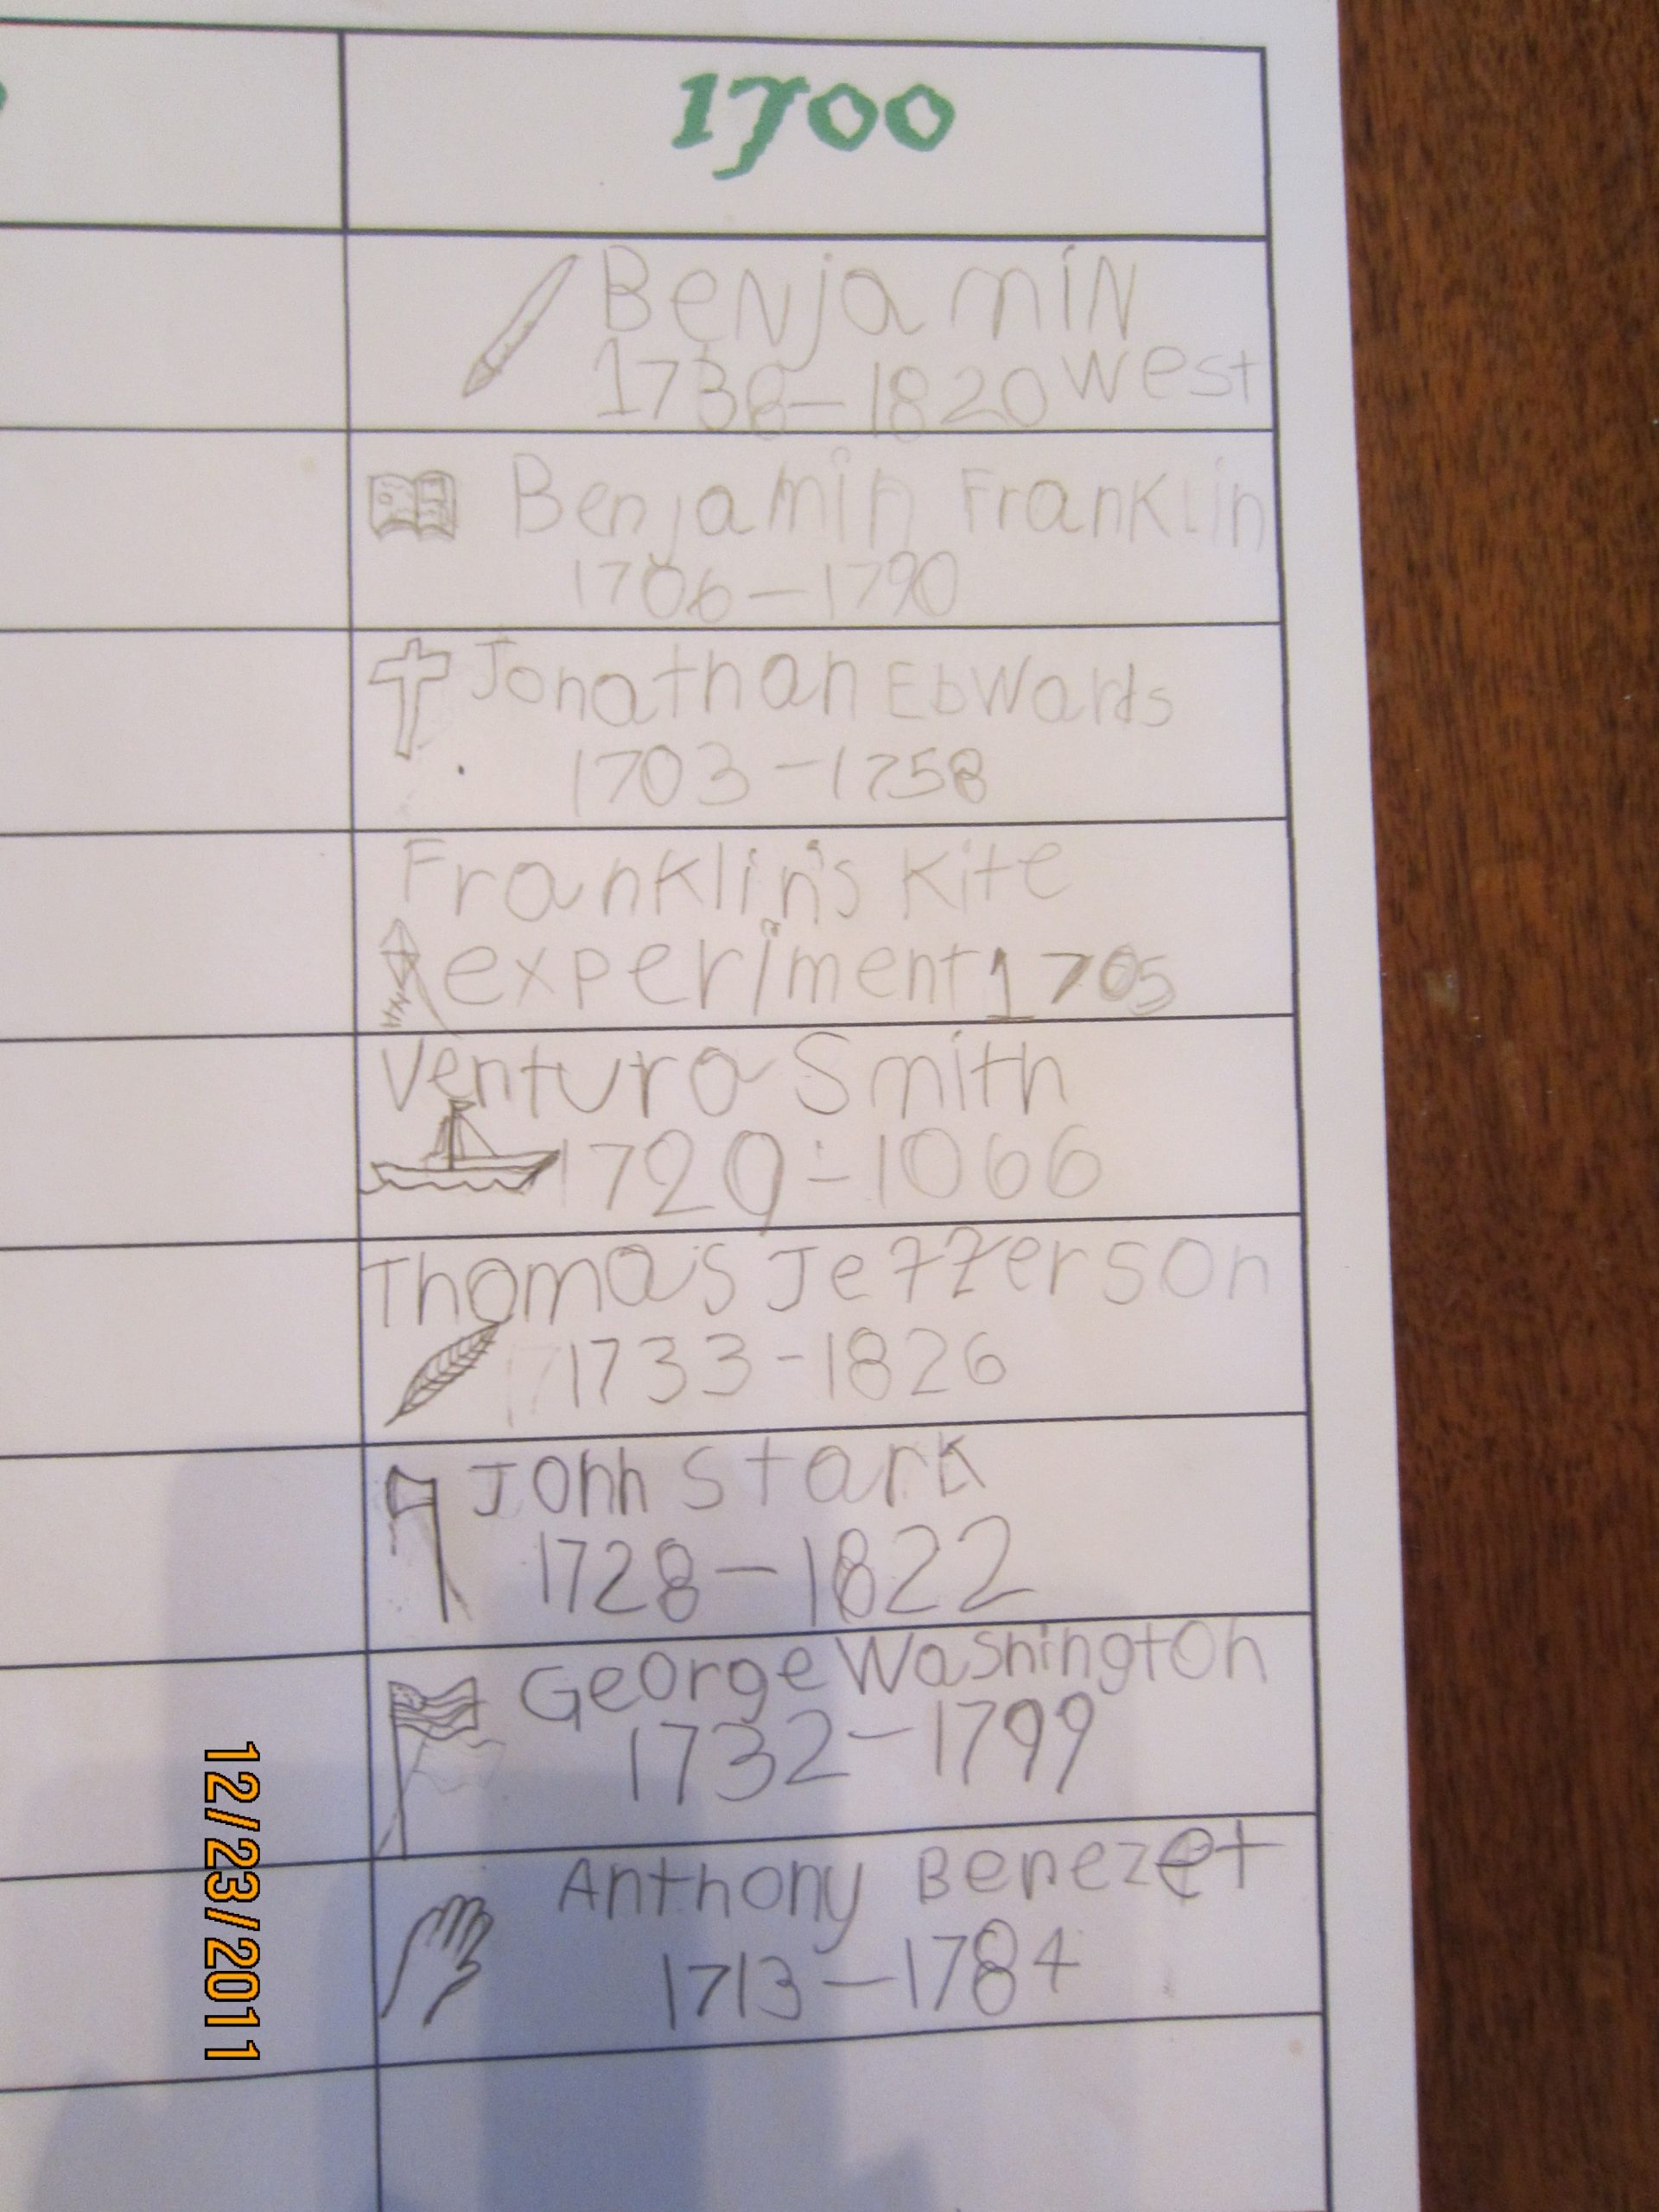 1700
Benjamin
1738-1820 West
Benjamin Franklin
1706-1790
Jonathan Edwards
1703-1758
Franklin's Kite
experiment 1705
Ventura Smith
1729-1066
Thomas Jefferson
1733-1826
John Stark
1728-1822
George Washington
1732-1799
Anthony Benezet
1713-1784
12/23/2011